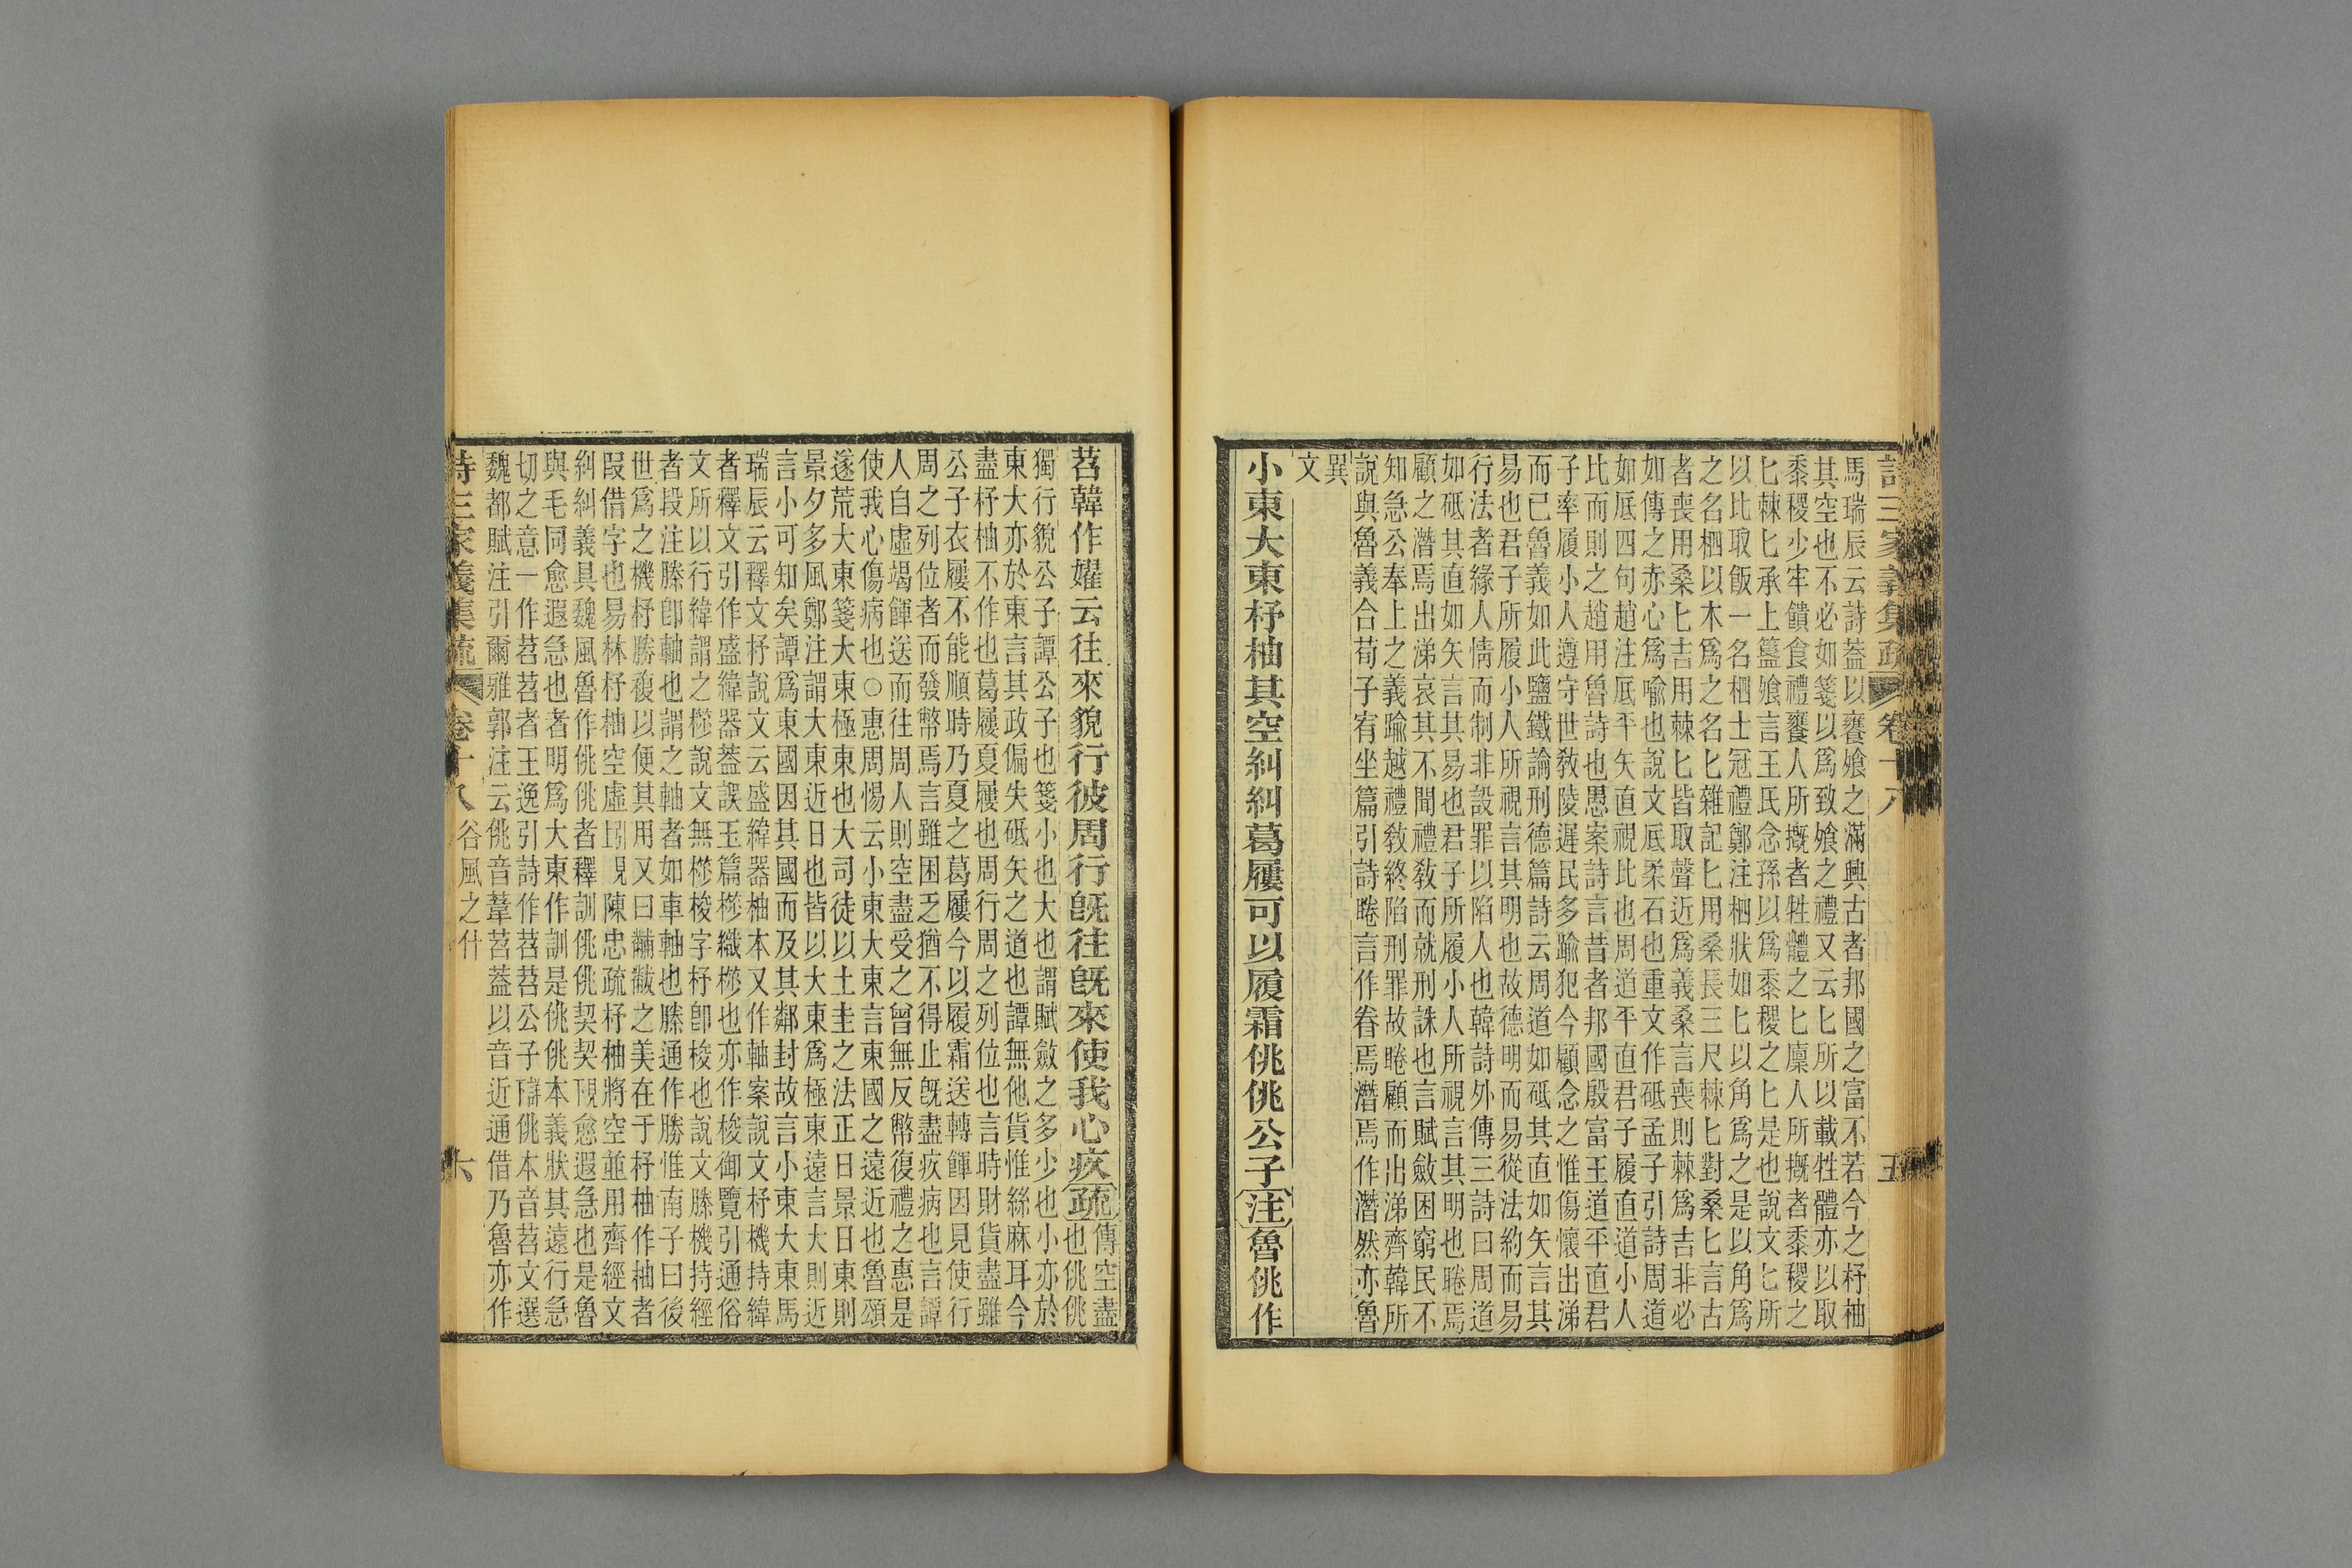 詩三家義集疏 卷十八 五
馬瑞辰云詩葢以饔飧之滿興古者邦國之富不若今之杼柚
其空也不必如箋以爲致飧之禮又云匕所以載牲體亦以取
黍稷少牢饋食禮饔人所摡者牲體之匕廩人所摡者黍稷之
匕棘匕承上簋飧言王氏念孫以爲黍稷之匕是也說文匕所
以比取飯一名柶士冠禮鄭注柶狀如匕以角爲之是以角爲
之名柶以木爲之名匕雜記匕用桑長三尺棘匕對桑匕言古
者喪用桑匕吉用棘匕皆取聲近爲義桑言喪則棘爲吉非必
如傳之亦心爲喻也說文厎柔石也重文作砥孟子引詩周道
如厎四句趙注厎平矢直視比也周道平直君子履直道小人
比而則之趙用魯詩也愚案詩言昔者邦國殷富王道平直君
子率履小人遵守世敎陵遲民多踰犯今顧念之惟傷懷出涕
而已魯義如此鹽鐵論刑德篇詩云周道如砥其直如矢言其
易也君子所履小人所視言其明也故德明而易從法約而易
行法者緣人情而制非設罪以陷人也韓詩外傳三詩曰周道
如砥其直如矢言其易也君子所履小人所視言其明也睠焉
顧之潛焉出涕哀其不聞禮敎而就刑誅也言賦斂困窮民不
知急公奉上之義踰越禮敎終陷刑罪故睠顧而出涕齊韓所
說與魯義合荀子宥坐篇引詩睠言作眷焉潛焉作潸然亦魯
異
文
小東大東杼柚其空糾糾葛屨可以履霜佻佻公子注魯佻作
苕韓作嬥云往來貌行彼周行旣往旣來使我心疚疏傳空盡
也佻佻
獨行貌公子譚公子也箋小也大也謂賦斂之多少也小亦於
東大亦於東言其政偏失砥矢之道也譚無他貨惟絲麻耳今
盡杼柚不作也葛屨夏屨也周行周之列位也言時財貨盡雖
公子衣屨不能順時乃夏之葛屨今以履霜送轉餫因見使行
周之列位者而發幣焉言雖困乏猶不得止旣盡疚病也言譚
人自虛竭餫送而往周人則空盡受之曾無反幣復禮之惠是
使我心傷病也○惠周惕云小東大東言東國之遠近也魯頌
遂荒大東箋大東極東也大司徒以土圭之法正日景日東則
景夕多風鄭注謂大東近日也皆以大東爲極東遠言大則近
言小可知矣譚爲東國因其國而及其鄰封故言小東大東馬
瑞辰云釋文杼說文云盛緯器柚本又作軸案說文杼機持緯
者釋文引作盛緯器葢誤玉篇㮳織㮳也亦作梭御覽引通俗
文所以行緯謂之㮳說文無㮳梭字杼卽梭也說文滕機持經
者段注滕卽軸也謂之軸者如車軸也滕通作勝惟南子曰後
世爲之機杼勝複以便其用又曰黼黻之美在于杼柚作柚者
叚借字也易林杼柚空虛陳忠疏杼柚將空並用齊經文
糾糾義具魏風魯作佻佻者釋訓佻佻契契愈遐急也是魯
與毛同愈遐急也者明爲大東作訓是佻佻本義狀其遠行急
切之意一作苕苕者王逸引詩作苕苕公子佻本音苕文選
魏都賦注引爾雅郭注云佻音葦苕葢以音近通借乃魯亦作
詩三家義集疏 卷十八 谷風之什 六